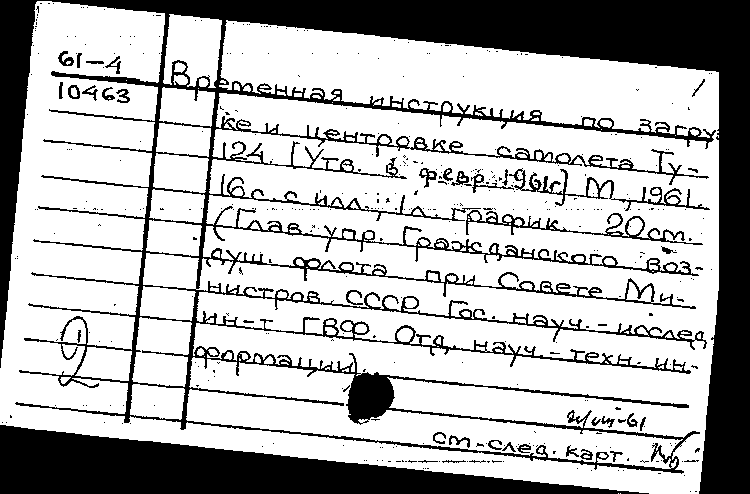 61-4
10463
Временная инструкция по загруз
ке и центровке самолета Ту-
124. [Утв. в февр. 1961г.] М., 1961.
16 с. с илл.; 1 л. график. 20 см.
(Глав. упр. Гражданского воз-
душ. флота при Совете Ми-
нистров СССР. Гос. науч.-исслед.
ин-т ГВФ. Отд. науч.-техн. ин-
формации).
2
см-след. карт.